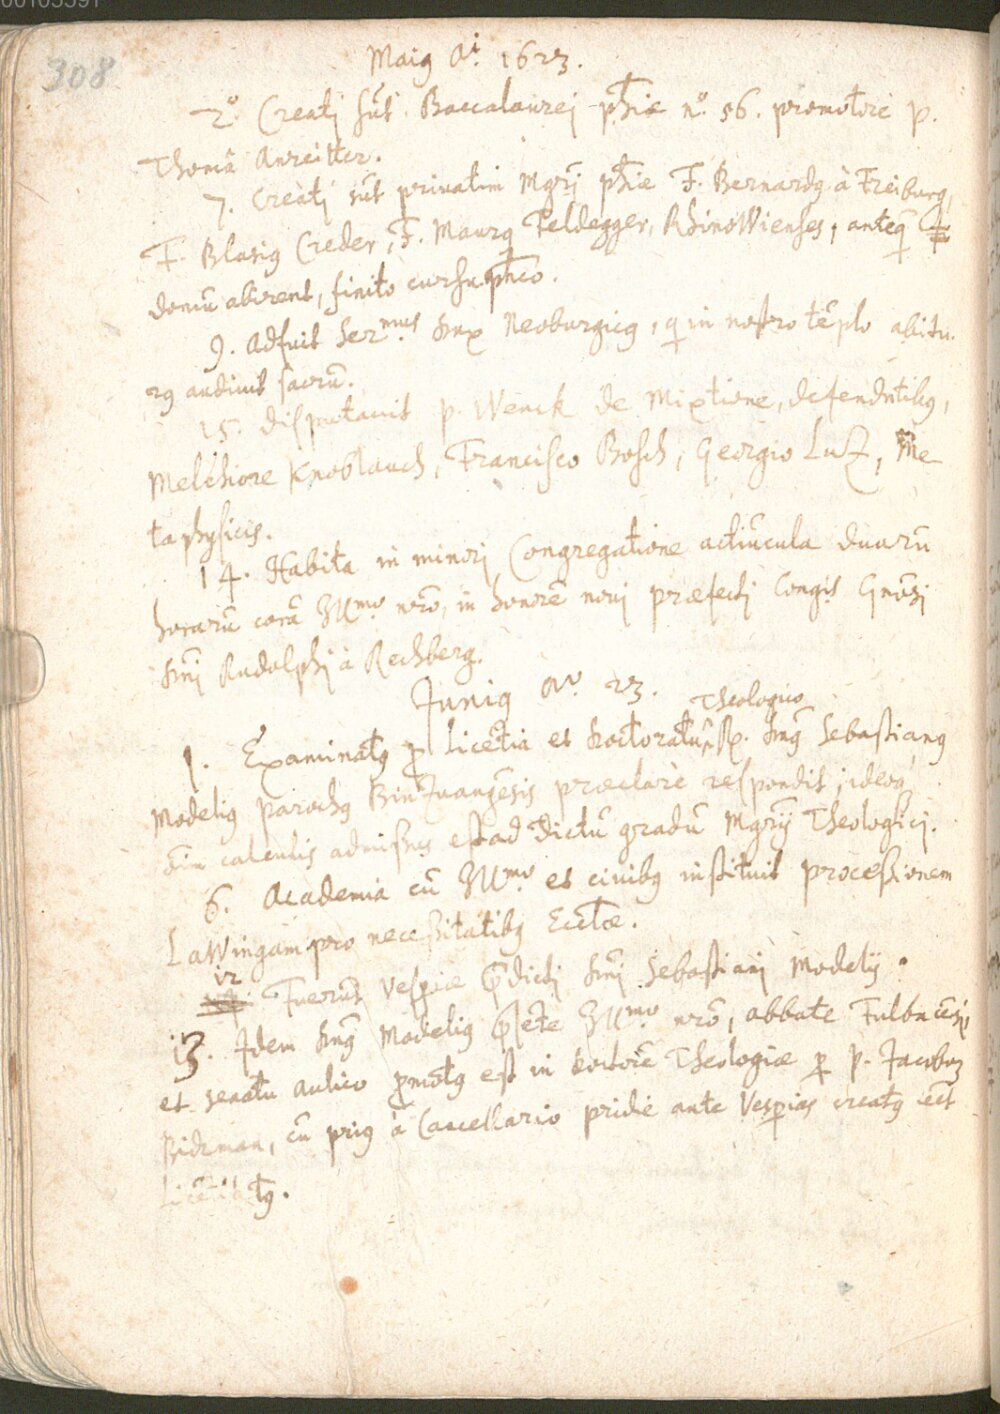 308
Maiꝰ Aͥ. 1623.
2º Creatj sūt Baccalaurej phiæ nº. 56. promotore p.
Thomâ Anreitter.
7. Creatj sūt priuatim Mgrj phiæ F. Bernardꝰ à Freiburg,
F. Blasiꝰ Creder, F. Maurꝰ Feldegger, RhinoWienses, anteq̄
domū abirent, finito cursu phico.
9. Adfuit Ser.mus Dux Neoburgicꝰ, q in nostro tēplo abitu-
rꝰ audiuit sacrū.
15. disputauit p. Wenck de Mixtione, defendētibꝰ,
Melchiore Knoblauch, Francisco Bosch, Georgio Lutz, Me
taphysicis.
14. Habita in minorj Congregatione actiūcula duarū
horarū corā Illmo nrō, in honorē nouj præfectj Congis Gnōsj
Dnj Rudolphj à Rechberg.
Juniꝰ Aº 23.
Theologico
1. Examinatꝰ ꝑ licētia et Doctoratu, R. Dnꝰ Sebastianꝰ
Modeliꝰ parochꝰ Binzuangēsis præclarè respondit; ideoqꝫ
Dim calculis admissus est ad dictū gradū Mgrij Theologicj.
6. Academia cū Illmo et ciuibꝰ instituit processionem
LaWingam pro necessitatibꝰ Eccłæ.
12 Fuerūt Vesperæ p̄dictj Dnj Sebastianj Modelij.
13. Idem Dnꝰ Modeliꝰ p̄sēte Illmo nrō, abbate Fultēsj,
et senatu aulico ꝓmotꝰ est in Doctorē Theologiæ ꝑ p. Jacobuꝫ
Bidrman, cū priꝰ à Cancellario pridie ante Vesperas creatꝰ eēt
Licētiatꝰ.